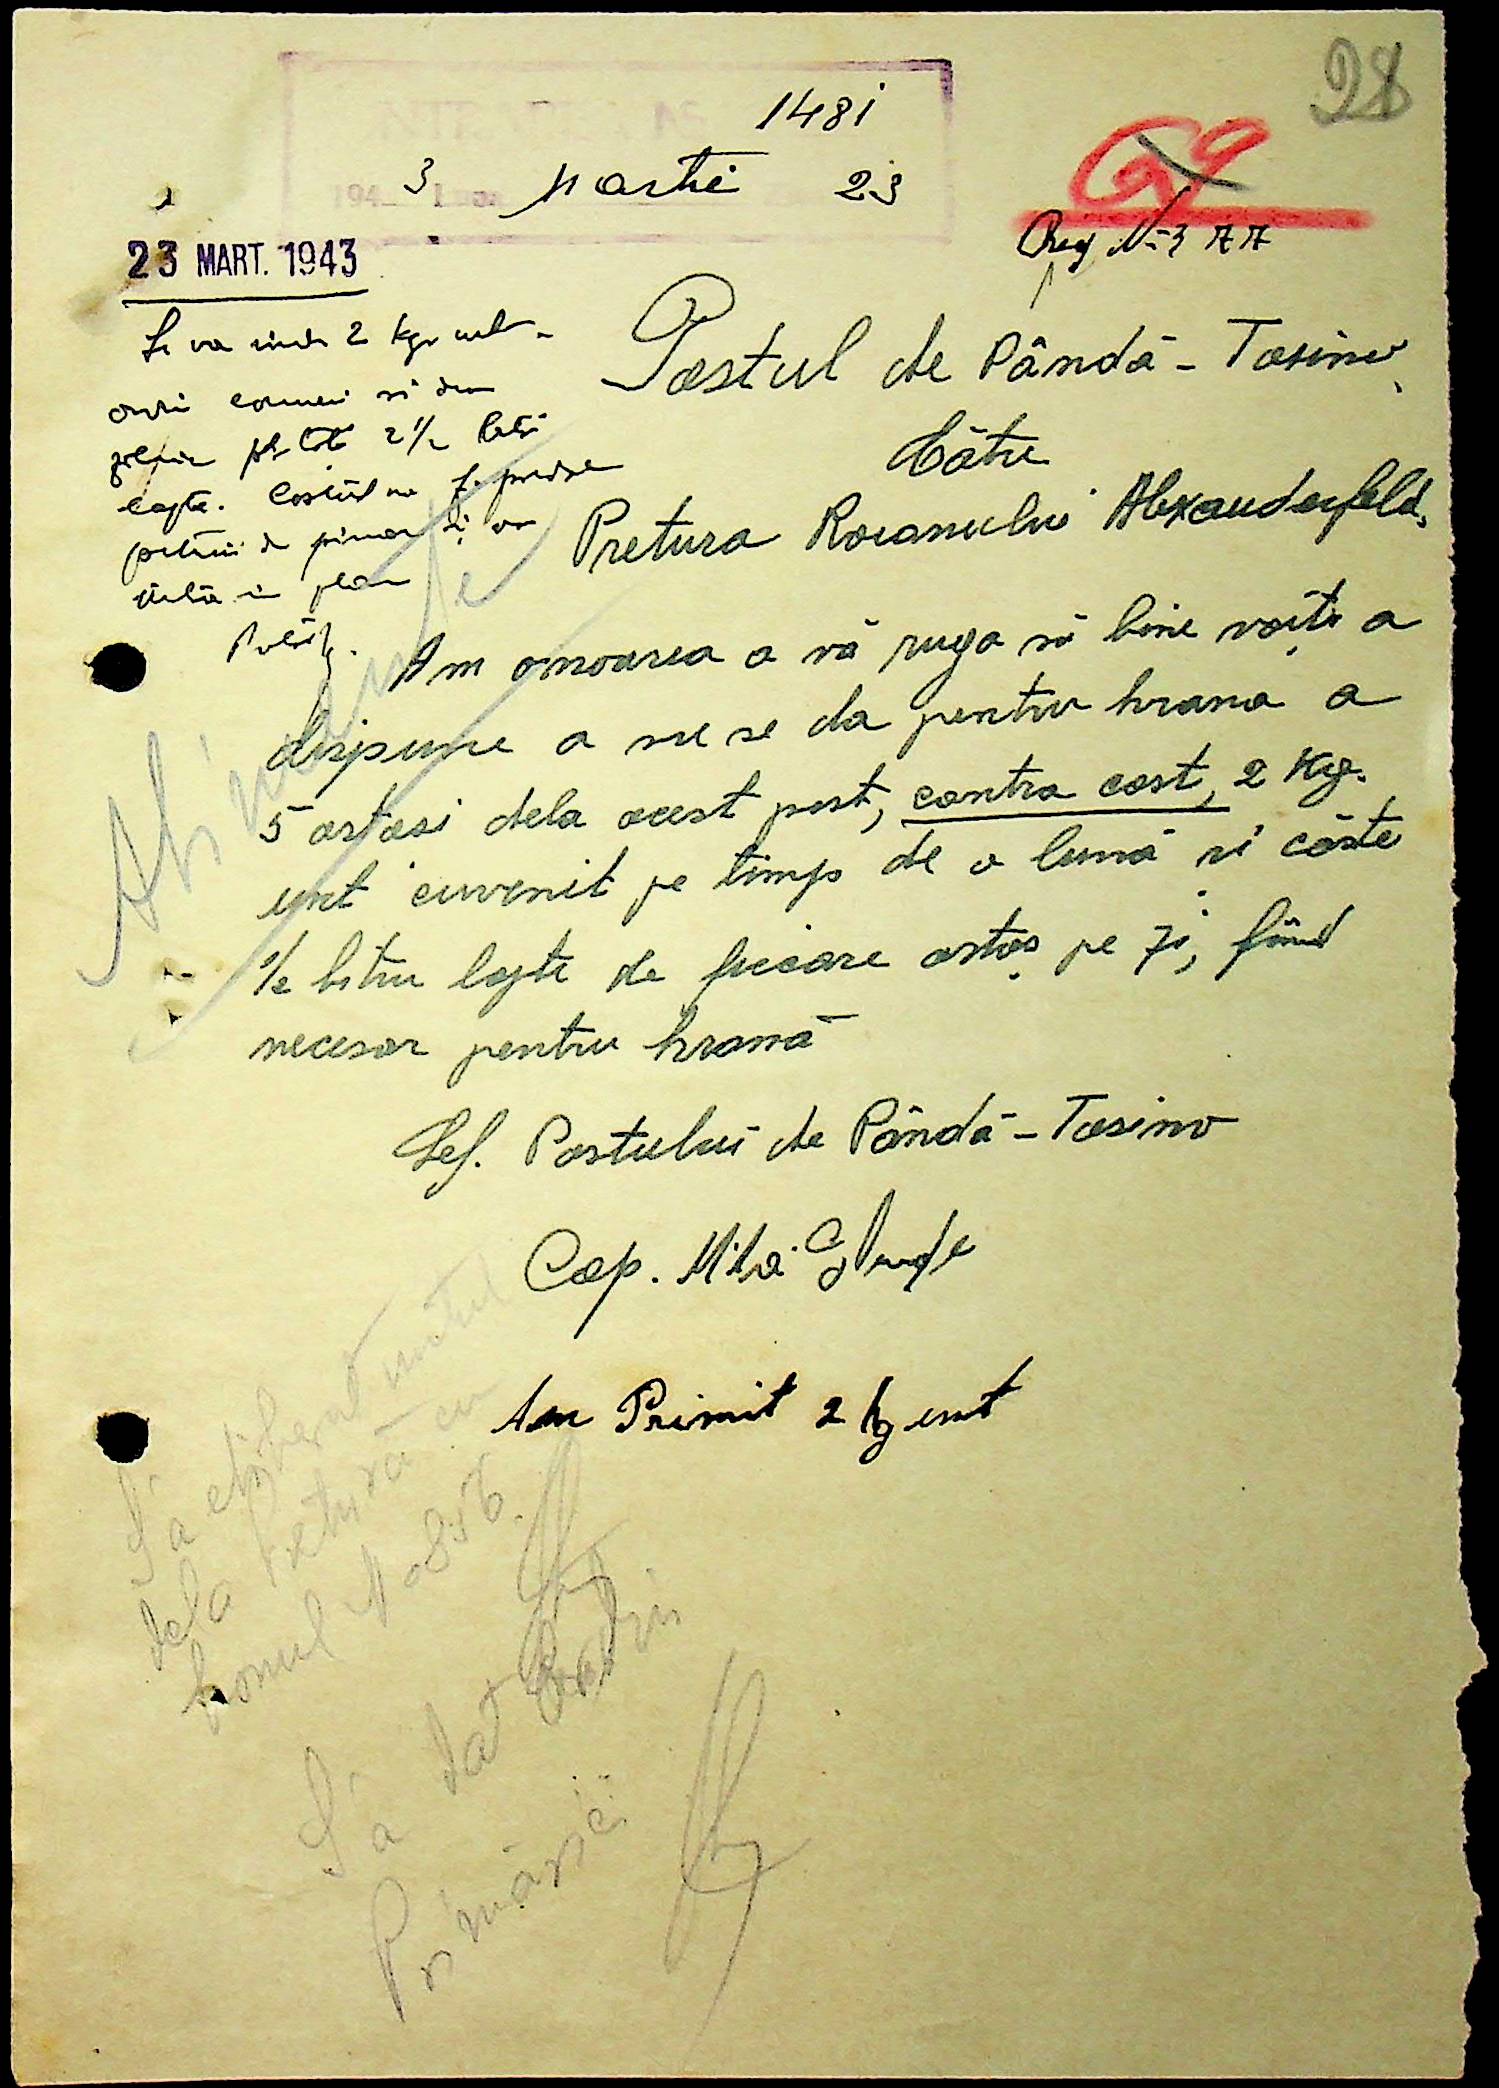 28
1481
3 Martie 23
69
Reg No 377
23 MART. 1943
Se va vinde 2 kgr unt
comunei si
2 1/2 litri
lapte. Costul
Postul de Pândă - Tasino
Către
Pretura Raionului Alexanderfeld,
Am onoarea a vă ruga să bine voiți a
dispune a ni se da pentru hrana a
5 ostasi dela acest post, contra cost, 2 Kg.
unt cuvenit pe timp de o lună si câte
1/2 litru lapte de fiecare ostaș pe zi, fiind
necesar pentru hrană
Șef. Postului de Pândă - Tasino
Cap. Mihai
Am Primit 2 kg unt
S'a eliberat untul
dela Pretură cu
bonul No 856.
S'a dat Ordin
Primăriei